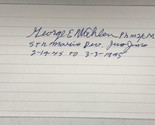 George E Wahlen Ph M 2/c
5TH Marine Div. Iwo Jima
2-19-45 TO 3-3-1945